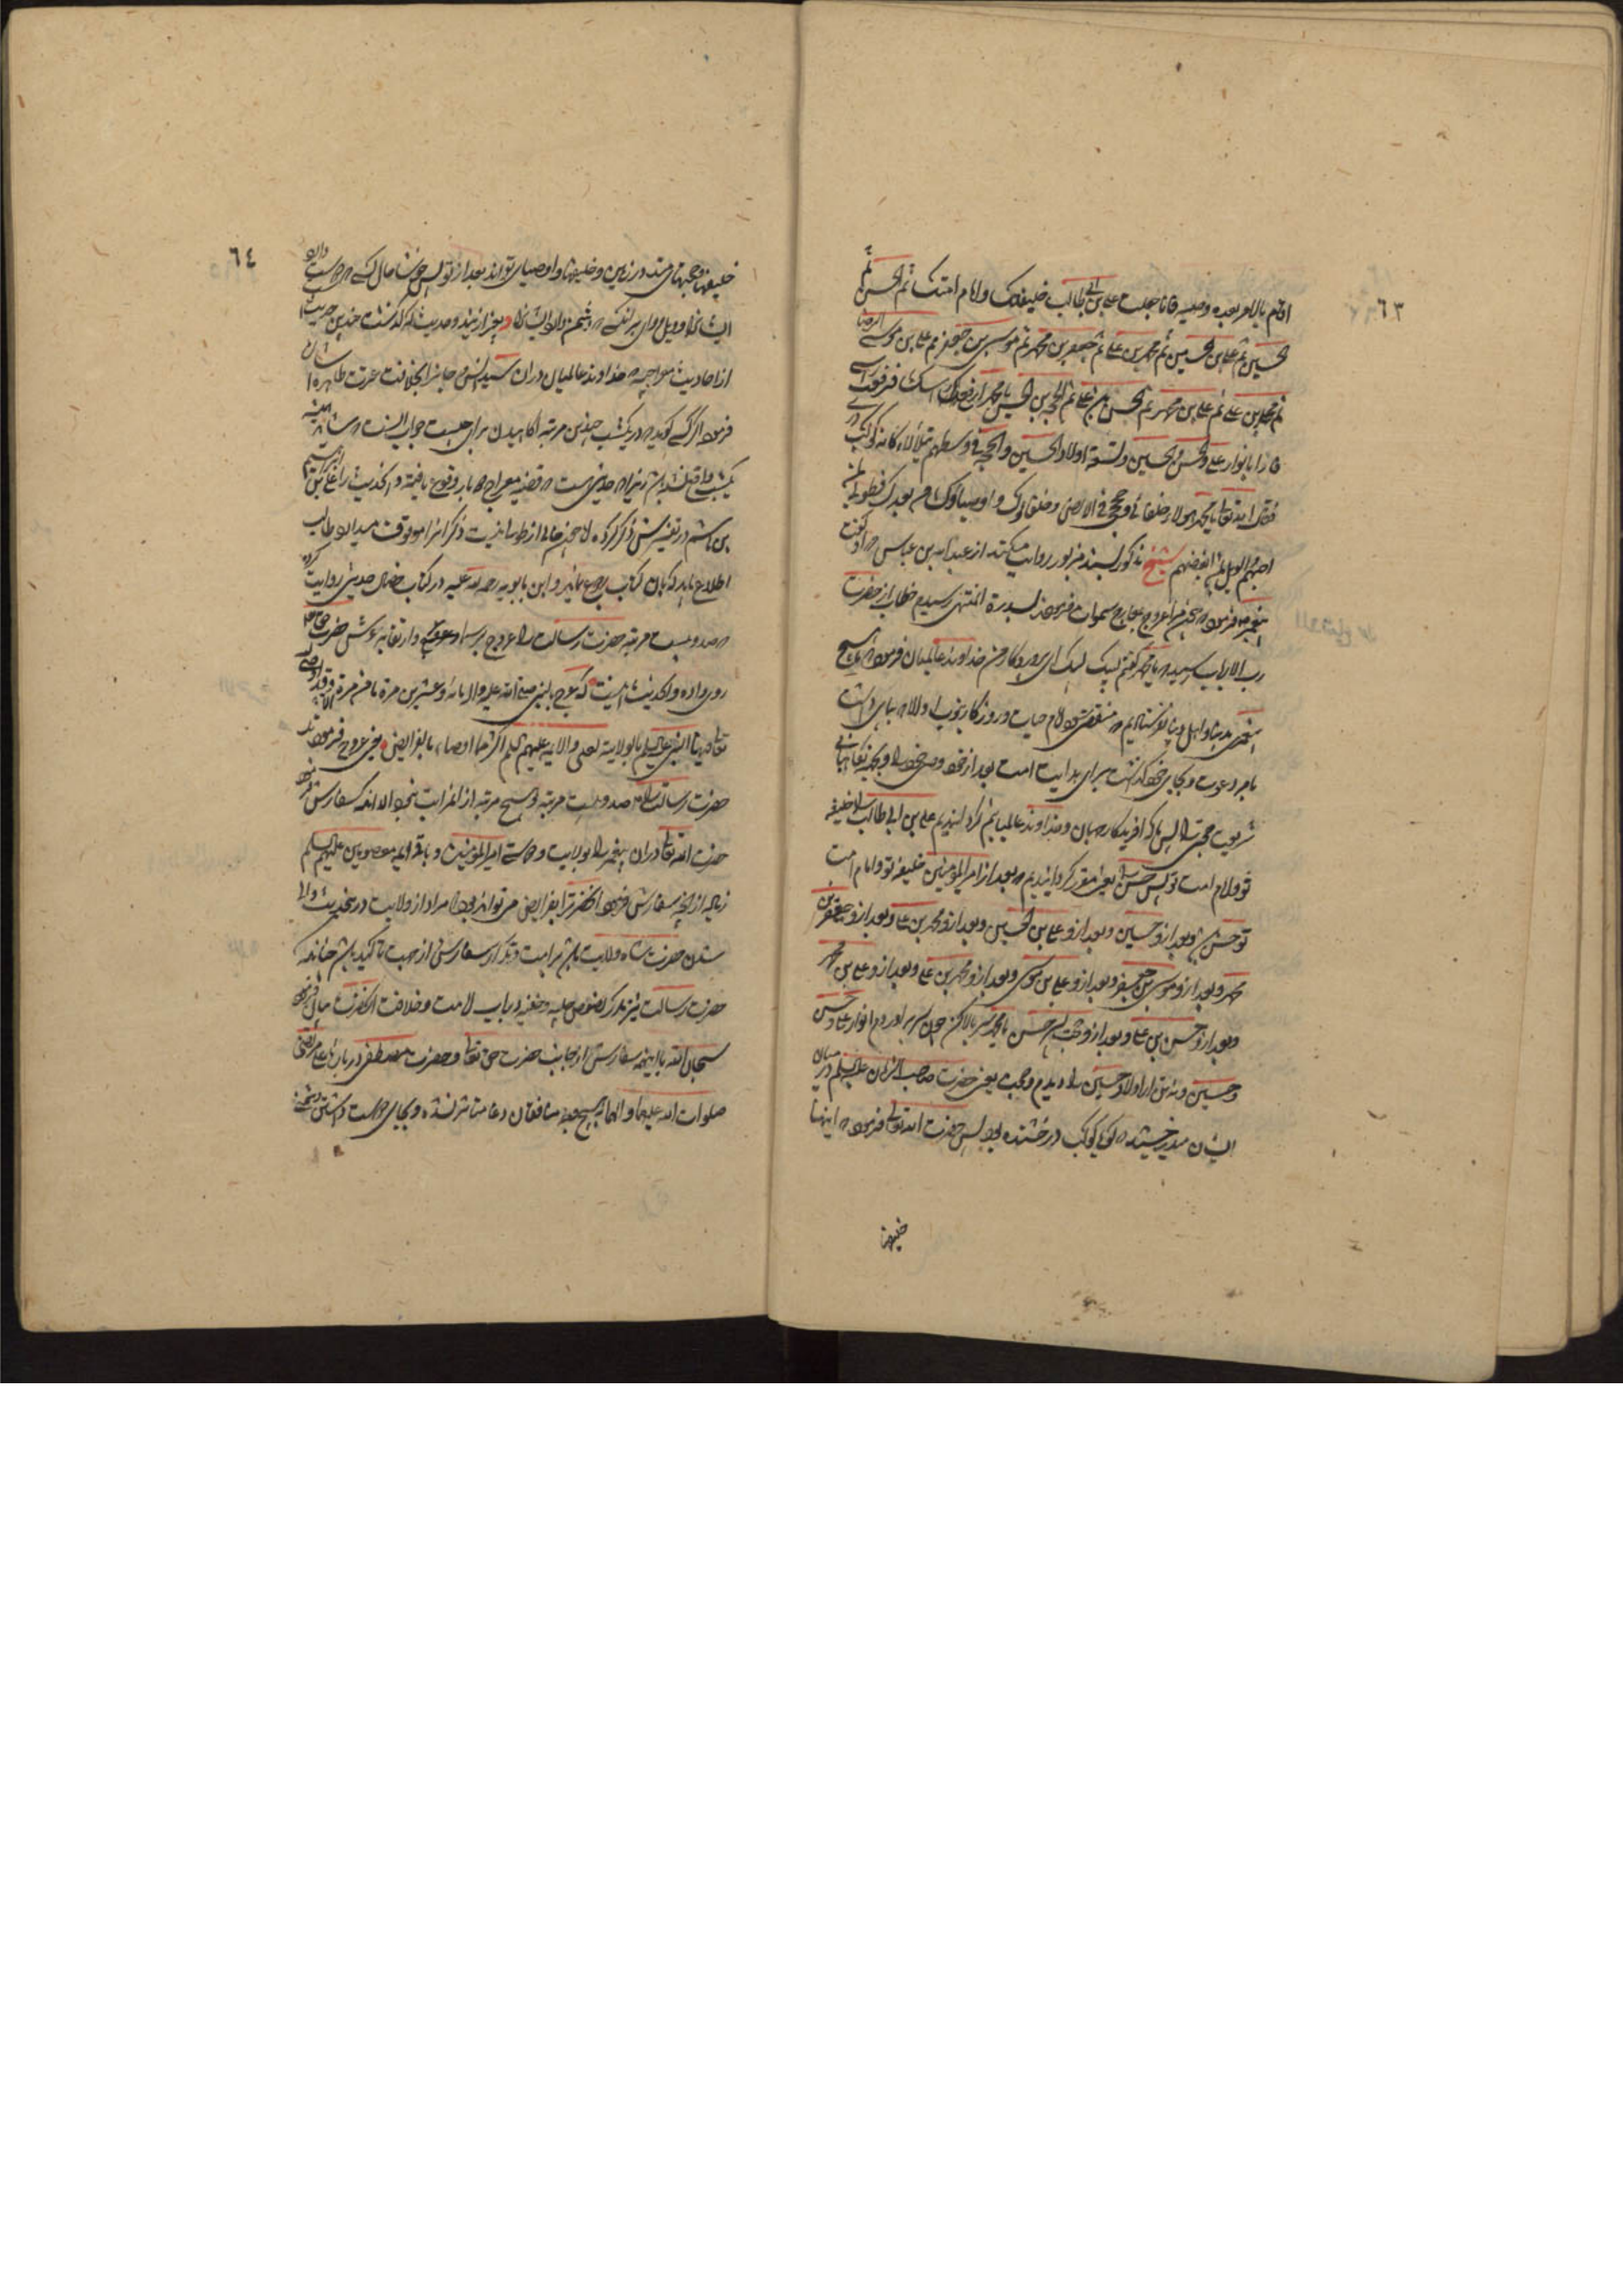 ٦٣
اقام بالامر بعده وصیه فانا جعلت علی بن ابی طالب خلیفتک وامام امتک ثم الحسن ثم
الحسین ثم علی بن الحسین ثم محمد بن علی ثم جعفر بن محمد ثم موسی بن جعفر ثم علی بن موسی الرضا
ثم محمد بن علی ثم علی بن محمد ثم الحسن بن علی ثم الحجة بن الحسن یا محمد ارفع راسک فرفعت راسی
فاذا بانوار علی والحسن والحسین وتسعة اولاد الحسین والحجة فی وسطهم یتلألأ کانه کوکب دری
فقال الله تعالی یا محمد هولاء خلفائی وحججی فی الارض وخلفاؤک واوصیاؤک من بعدک فطوبی لمن
احبهم والویل لمن ابغضهم شیخ مذکور بسند مزبور روایت میکند از عبد الله بن عباس که او گفت
پیغمبر فرمود که چون مرا عروج بمعارج سموات فرمودند بسدرة المنتهی رسیدم خطاب از حضرت
رب الارباب رسید که یا محمد گفتم لبیک لبیک ای پروردگار من خداوند عالمیان فرمود که ما هیچ
پیغمبری بدنیا و اهل دنیا نفرستادیم که منقضی شود ایام حیات و روزگار نبوت او الا که بپای داشت
بامر دعوت و بجای خود گذاشت برای هدایت امت بعد از خود وصی خود را و بجهة نگاهبانی
شریعت حجتی را پس ما که افریدگار جهان و خداوند عالمیانیم گردانیدیم علی بن ابی طالب را خلیفه
تو و امام امت تو پس حسن را یعنی مقرر گردانیدیم که بعد از امیر المؤمنین خلیفه تو و امام امت
تو حسن باشد و بعد از و حسین و بعد از و علی بن الحسین و بعد از و محمد بن علی و بعد از و جعفر بن
محمد و بعد از و موسی بن جعفر و بعد از و علی بن موسی و بعد از و محمد بن علی و بعد از و علی بن محمد
و بعد از و حسن بن علی و بعد از و حجت پسر حسن یا محمد سر بالا کن چون سر براوردم انوار علی و حسن
و حسین و نه تن از اولاد حسین را دیدم و حجت یعنی حضرت صاحب الزمان علیه السلم در میان
ایشان میدرخشید که گویا کوکب درخشنده بود پس حضرت الله تعالی فرمود که اینها
خلیفها
٦٤
خلیفها و حجتهای منند در زمین و خلیفها و اوصیای تواند بعد از تو پس خوشا حال کسی که دوست دارد
ایشانرا و ویل و وای بر انکسی که دشمن دارد ایشانرا و بغیر از نیز دو حدیث که گذشت چندین حدیث
از احادیث مواجهه که خداوند عالمیان دران سید انس و جانرا بخلافت عترت طاهره اشارت
فرموده اگر کسی گوید که در یکشب چندین مرتبه اگاهیدن برای چیست جواب انست که شاید همینه
یکشب واقع نشده باشد زیرا که حدیثی هست که قضیه معراج مکرر وقوع یافته و ان حدیث را علی بن ابراهیم
بن هاشم در تفسیرش ذکر کرده و چون خالی از طول نیست ذکر انرا موقوف میدارد طالب
اطلاع باید که بان کتاب رجوع نماید و ابن بابویه رحمه الله علیه در کتاب خصال حدیثی روایت کرده
که صد و بیست مرتبه حضرت رسالت را عروج بر سما و ارتقا بعرش حضرت حق تعالی
روی داده و ان حدیث اینست که عرج بالنبی صلی الله علیه واله مائة وعشرین مرة ما من مرة الا وقد اوصی الله
تعالی فیها النبی علیه السلم بالولایة لعلی والائمة علیهم السلم اکثر مما اوصاه بالفرایض یعنی عروج فرمودند
حضرت رسالت را صد و بیست مرتبه و هیچ مرتبه از انمراتب نبود الا انکه سفارش فرمود
حضرت الله تعالی دران پیغمبر را بولایت و دوستی امیر المؤمنین و باقی ائمه معصومین علیهم السلم
زیاده از انچه سفارش فرمود انحضرت را بفرایض می تواند بود که مراد از ولایت در حدیث والی
شدن حضرت شاه ولایت باشد بر امت و تکرار سفارش از جهت تاکید باشد چنانکه
حضرت رسالت نیز مکرر بنصوص جلیه و خفیه در باب امامت و خلافت انحضرت مبالغه فرمود
سبحان الله با اینهمه سفارش از جانب حضرت حق تعالی و حضرت مصطفی در باره علی مرتضی
صلوات الله علیهما والهما هیچ وجه منافقان دغا متاثر نشده و بجای دوستی دشمنی